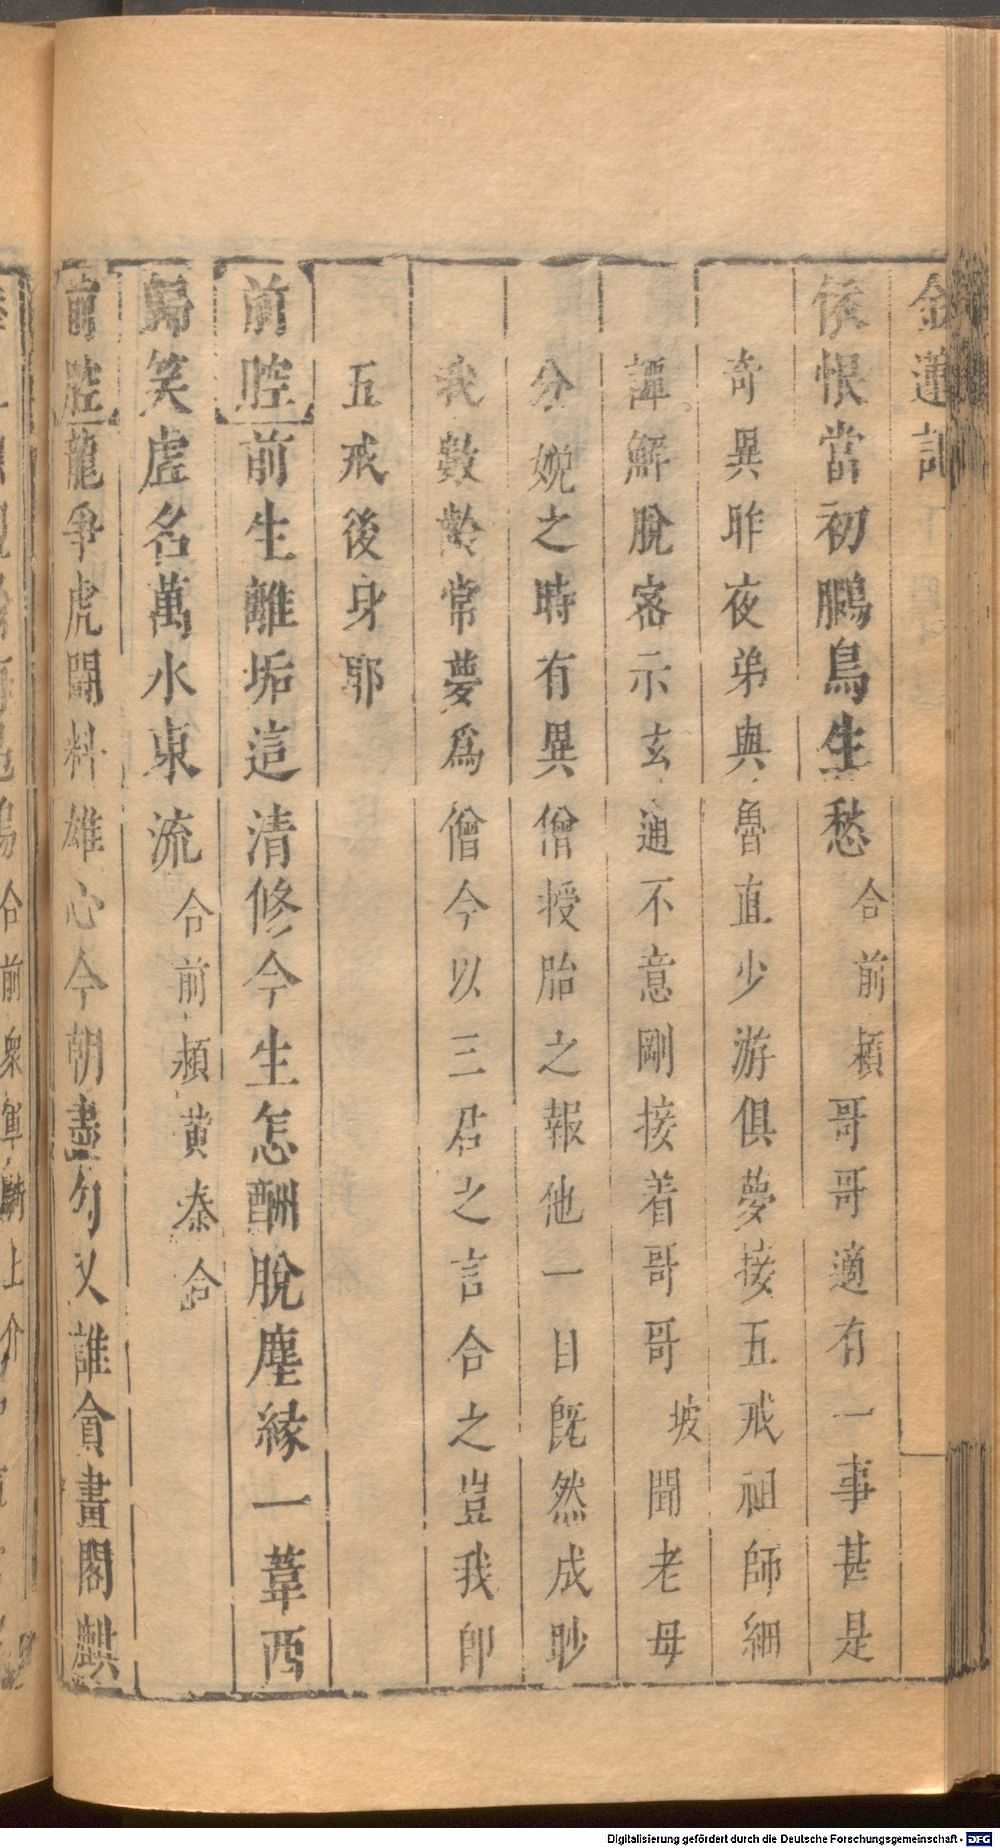 金蓮記
侯恨當初鵬鳥生愁 合前 潁 哥哥適有一事甚是
奇異昨夜弟與魯直少游俱夢接五戒祖師細
譚解脫密示玄通不意剛接着哥哥 坡 聞老母
分娩之時有異僧授胎之報他一目旣然成眇
我數齡常夢爲僧今以三君之言合之豈我卽
五戒後身耶
前腔 前生離垢這清修今生怎酬脫塵緣一葦西
歸笑虛名萬水東流 合前 潁黃秦合
前腔 龍爭虎鬪料雄心今朝盡勾又誰貪畫閣麒
Digitalisierung gefördert durch die Deutsche Forschungsgemeinschaft - DFG